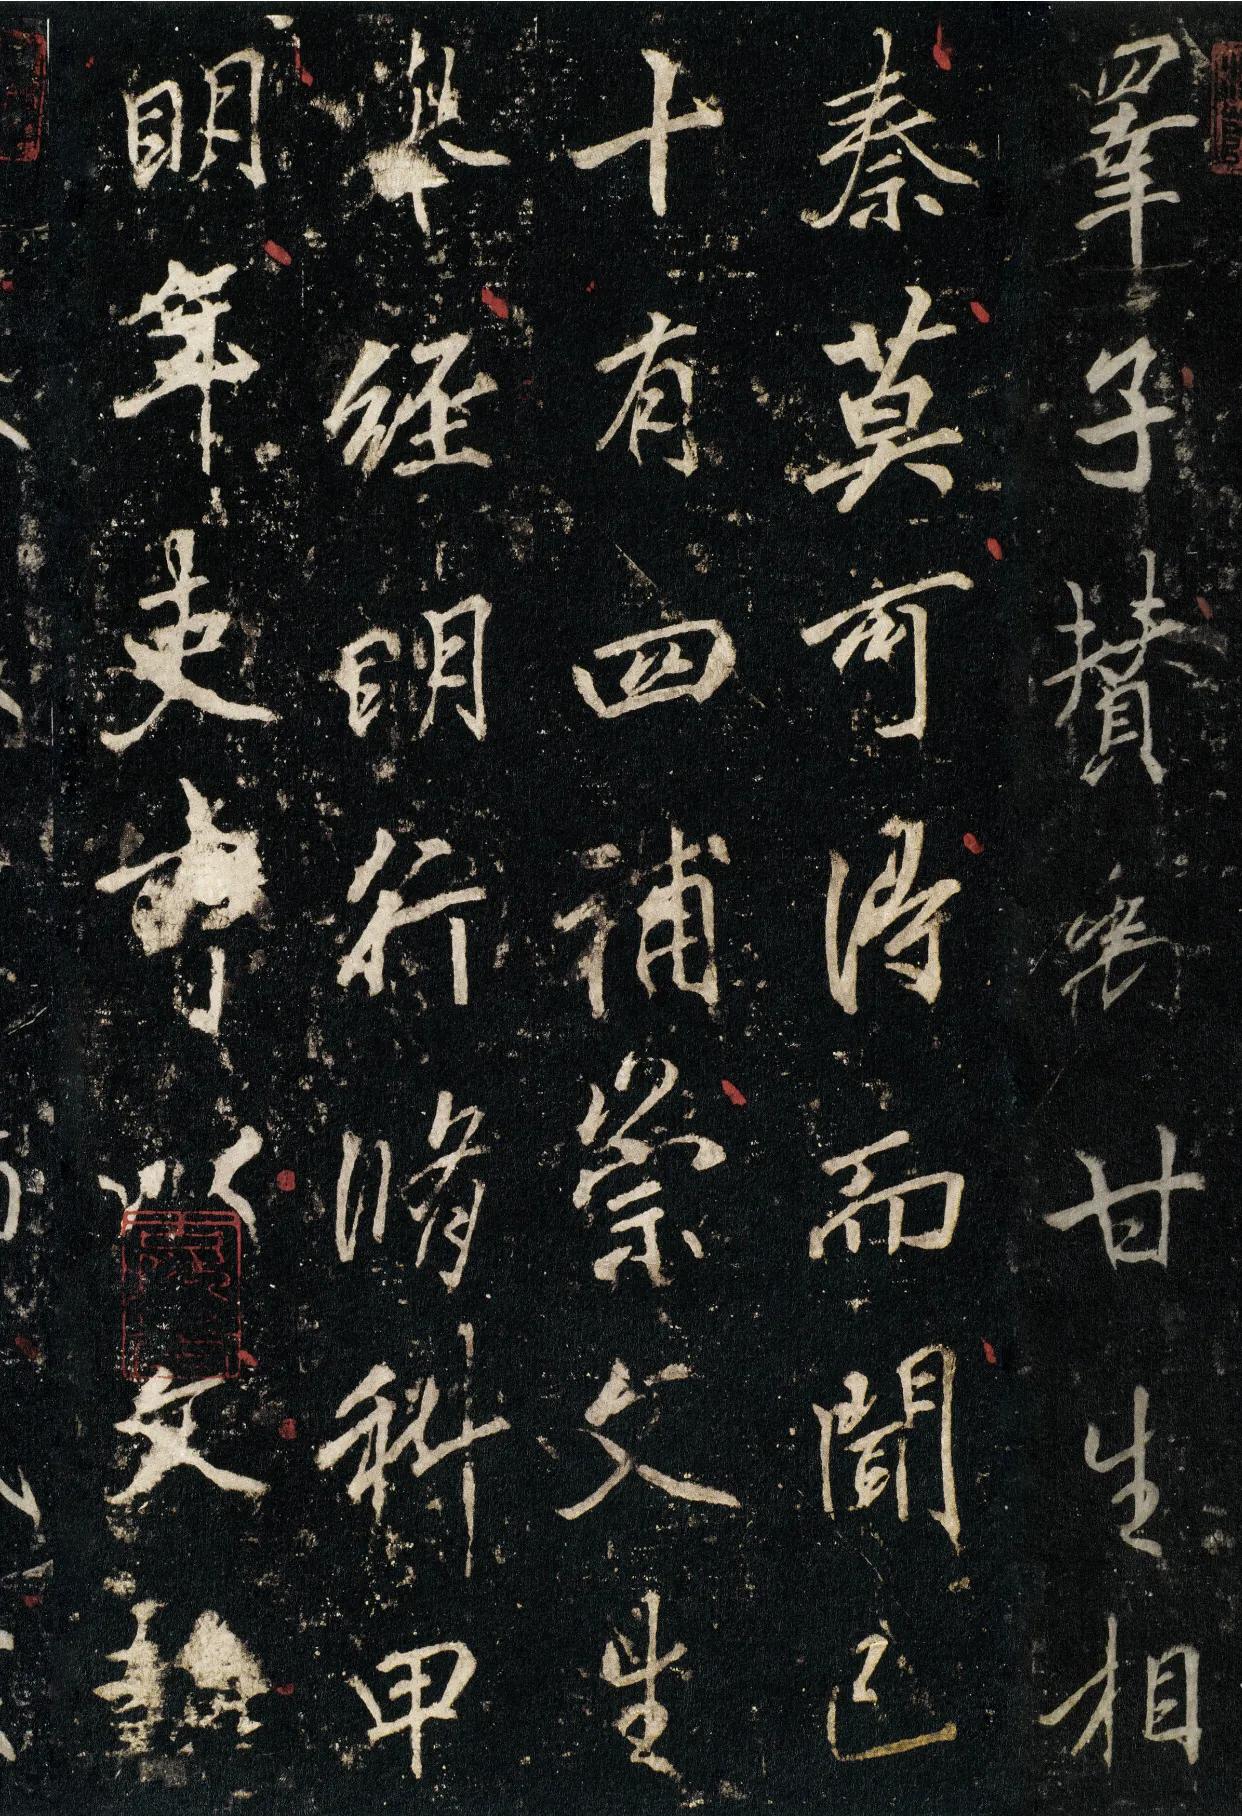 睪子攅禹甘生相
秦莫可得而聞已
十有四補崇文生
舉經明行脩科甲
明年吏部以文翰